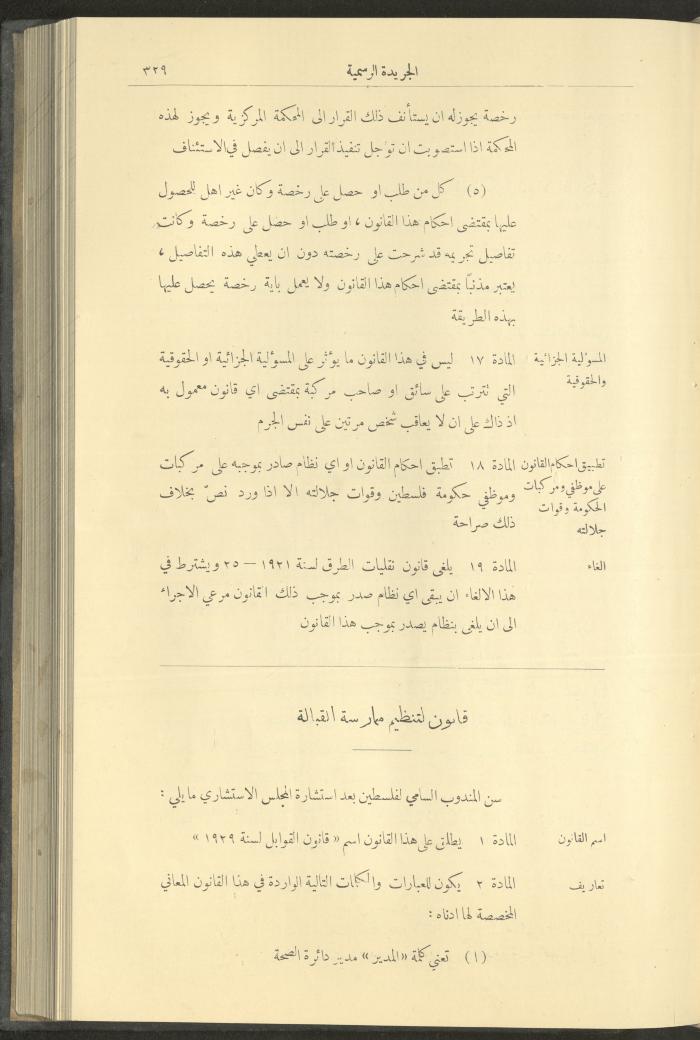 الجريدة الرسمية ٣٢٩
رخصة يجوزله ان يستأنف ذلك القرار الى المحكمة المركزية ويجوز لهذه
المحكمة اذا استصوبت ان توجل تنفيذ القرار الى ان يفصل في الاستئناف
(٥) كل من طلب او حصل على رخصة وكان غير اهل للحصول
عليها بمقتضى احكام هذا القانون ، او طلب او حصل على رخصة وكانت
تفاصيل تجريمه قد شرحت على رخصته دون ان يعطي هذه التفاصيل ،
يعتبر مذنبًا بمقتضى احكام هذا القانون ولا يعمل باية رخصة يحصل عليها
بهذه الطريقة
المسؤلية الجزائية
والحقوقية
المادة ١٧ ليس في هذا القانون ما يؤثر على المسؤلية الجزائية او الحقوقية
التي تترتب على سائق او صاحب مركبة بمقتضى اي قانون معمول به
اذ ذاك على ان لا يعاقب شخص مرتين على نفس الجرم
تطبيق احكام القانون
على موظفي ومركبات
الحكومة وقوات
جلالته
المادة ١٨ تطبق احكام القانون او اي نظام صادر بموجبه على مركبات
وموظفي حكومة فلسطين وقوات جلالته الا اذا ورد نصّ بخلاف
ذلك صراحة
الغاء
المادة ١٩ يلغى قانون نقليات الطرق لسنة ١٩٢١ — ٢٥ ويشترط في
هذا الالغاء ان يبقى اي نظام صدر بموجب ذلك القانون مرعي الاجراء
الى ان يلغى بنظام يصدر بموجب هذا القانون
قانون لتنظيم ممارسة القبالة
سن المندوب السامي لفلسطين بعد استشارة المجلس الاستشاري ما يلي :
اسم القانون
المادة ١ يطلق على هذا القانون اسم « قانون القوابل لسنة ١٩٢٩ »
تعاريف
المادة ٢ يكون للعبارات والكلمات التالية الواردة في هذا القانون المعاني
المخصصة لها ادناه :
(١) تعني كلمة «المدير» مدير دائرة الصحة